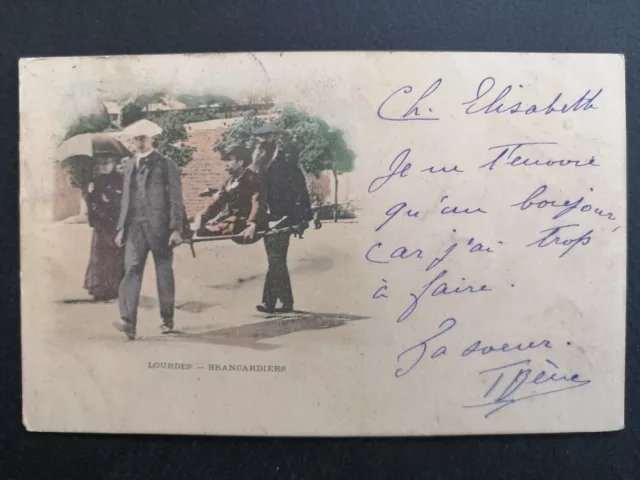 Ch. Elisabeth
Je ne t'envoie
qu'un bonjour,
car j'ai trop
à faire.
Ta soeur.
Irène
LOURDES — BRANCARDIERS